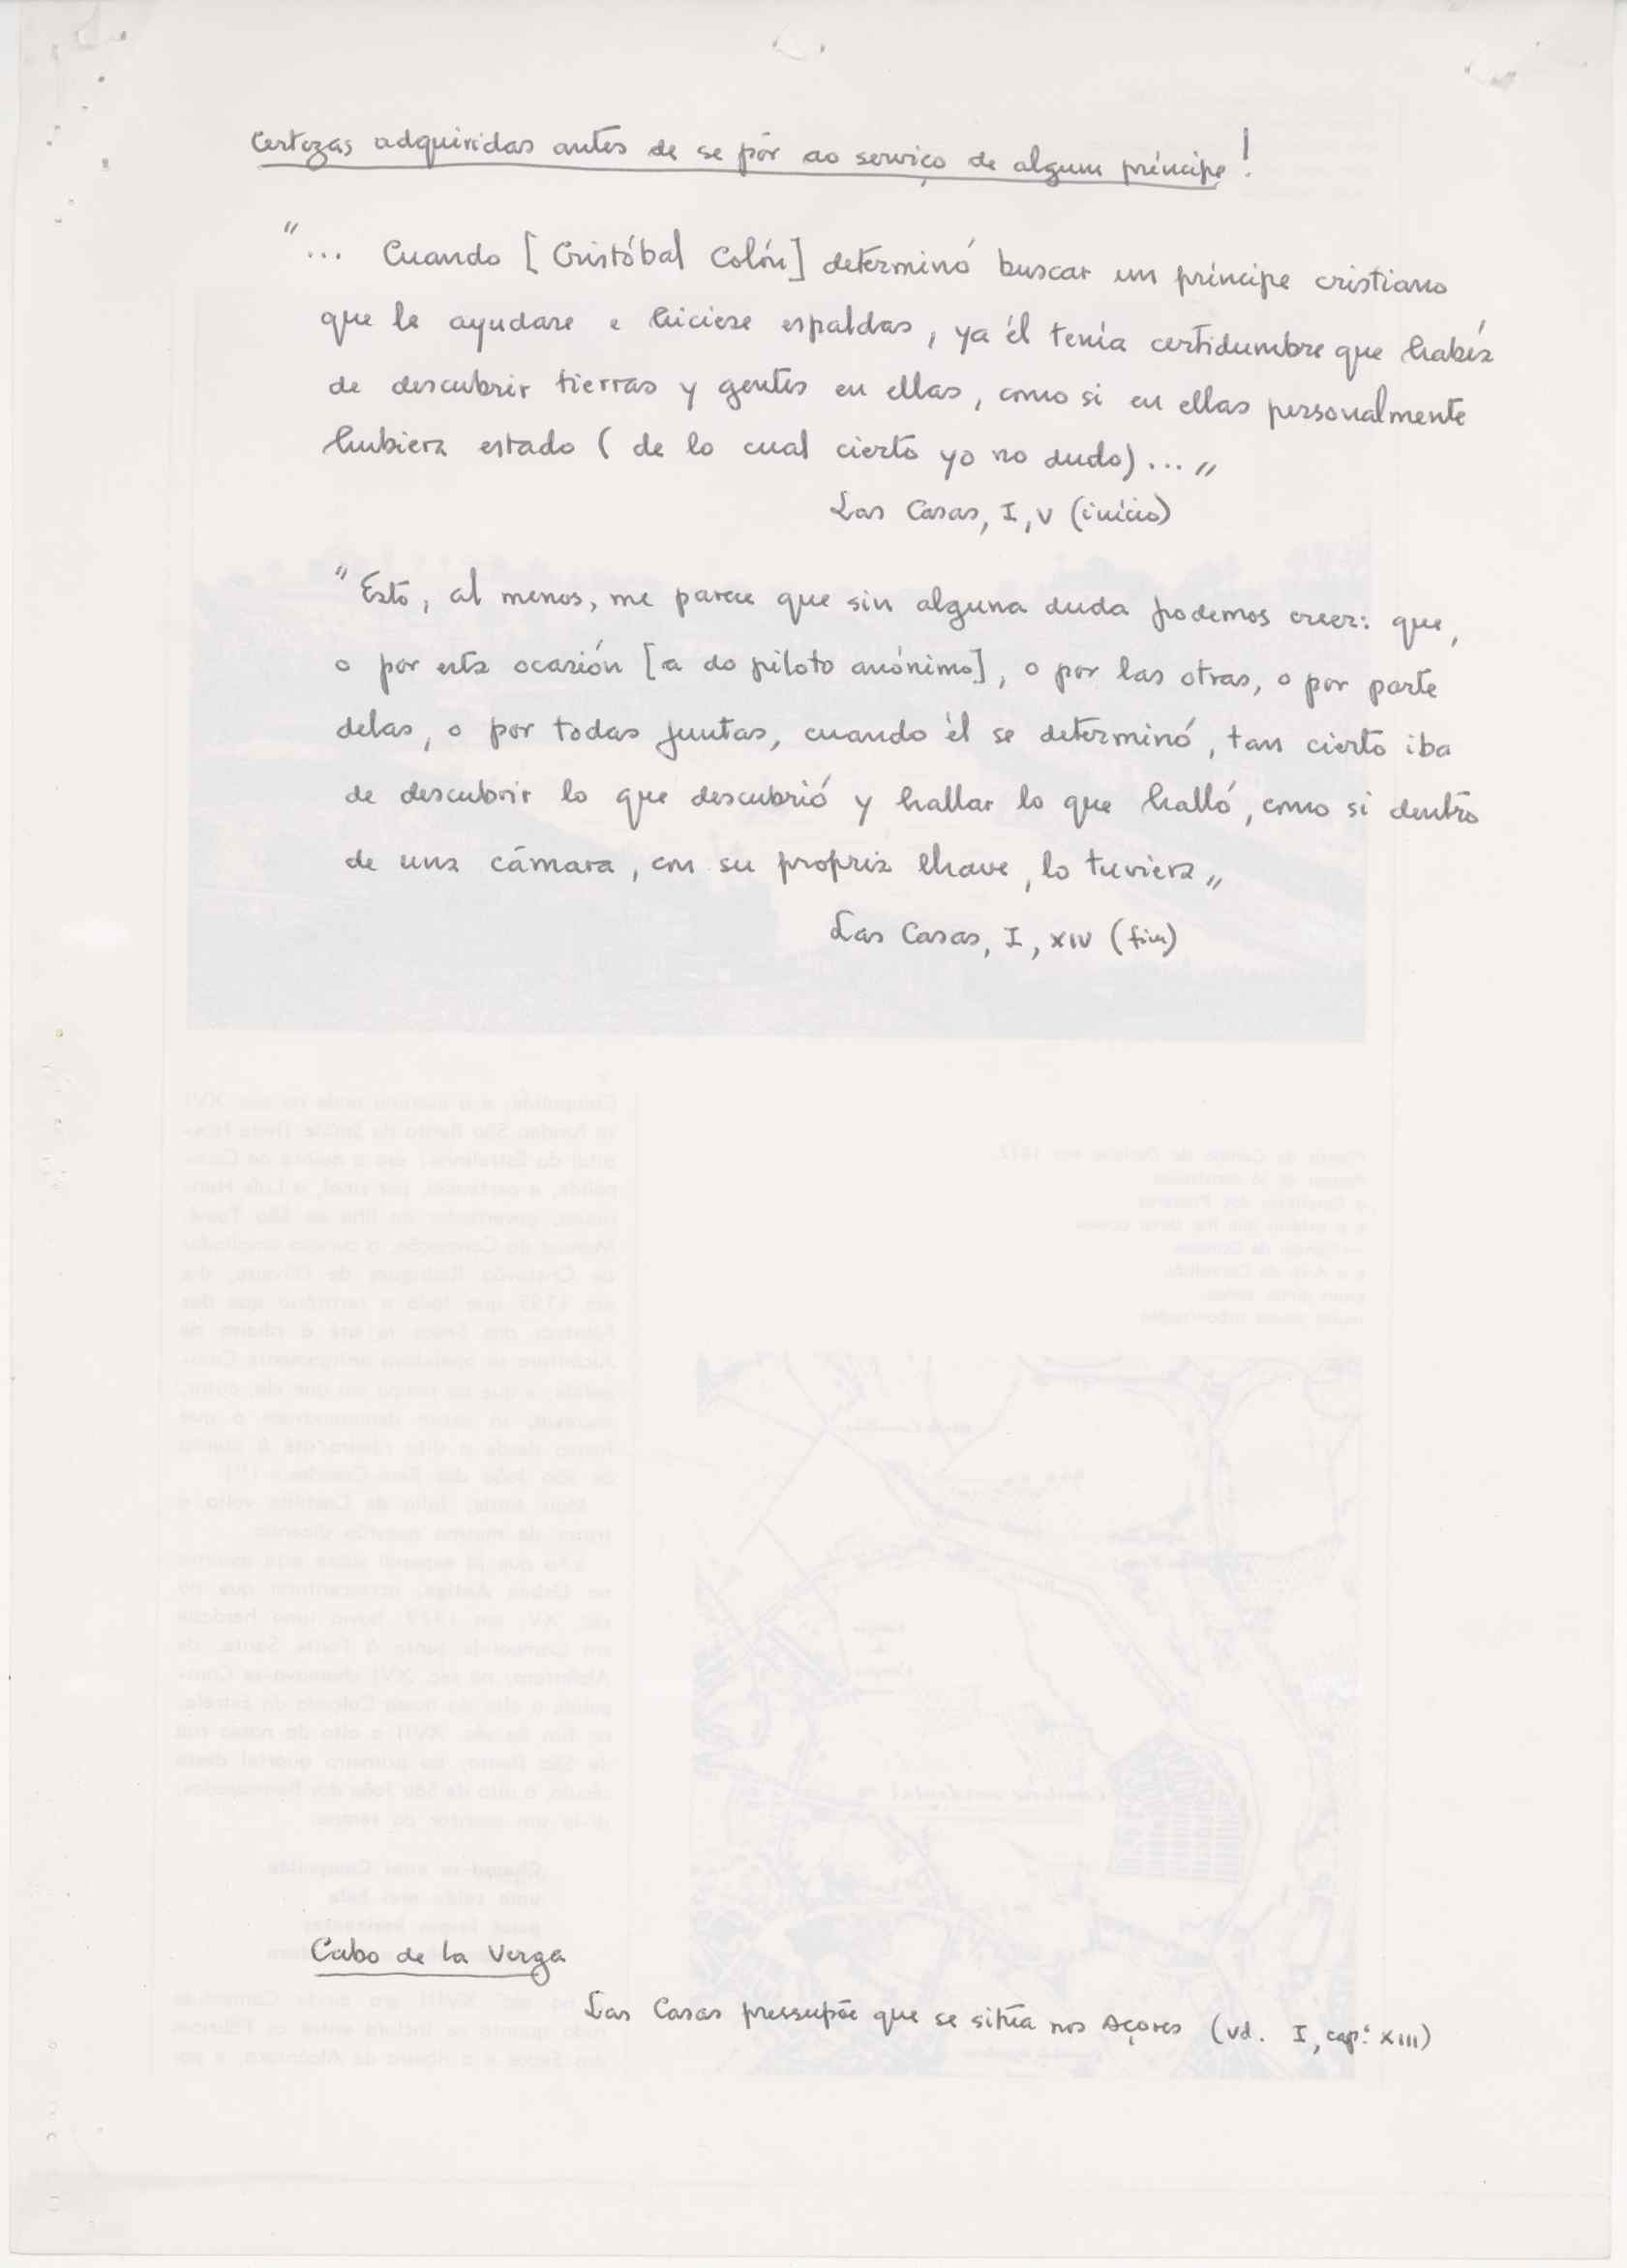 Certezas adquiridas antes de se pôr ao serviço de algum príncipe!
"... Cuando [Cristóbal Colón] determinó buscar un príncipe cristiano
que le ayudase e hiciese espaldas, ya él tenía certidumbre que había
de descubrir tierras y gentes en ellas, como si en ellas personalmente
hubiera estado (de lo cual cierto yo no dudo)..."
Las Casas, I, V (início)
"Esto, al menos, me parece que sin alguna duda podemos creer: que,
o por esta ocasión [a do piloto anónimo], o por las otras, o por parte
delas, o por todas juntas, cuando él se determinó, tan cierto iba
de descubrir lo que descubrió y hallar lo que halló, como si dentro
de una cámara, con su propria lhave, lo tuviera"
Las Casas, I, XIV (fim)
Cabo de la Verga
Las Casas pressupõe que se situa nos Açores (vd. I, cap.º XIII)